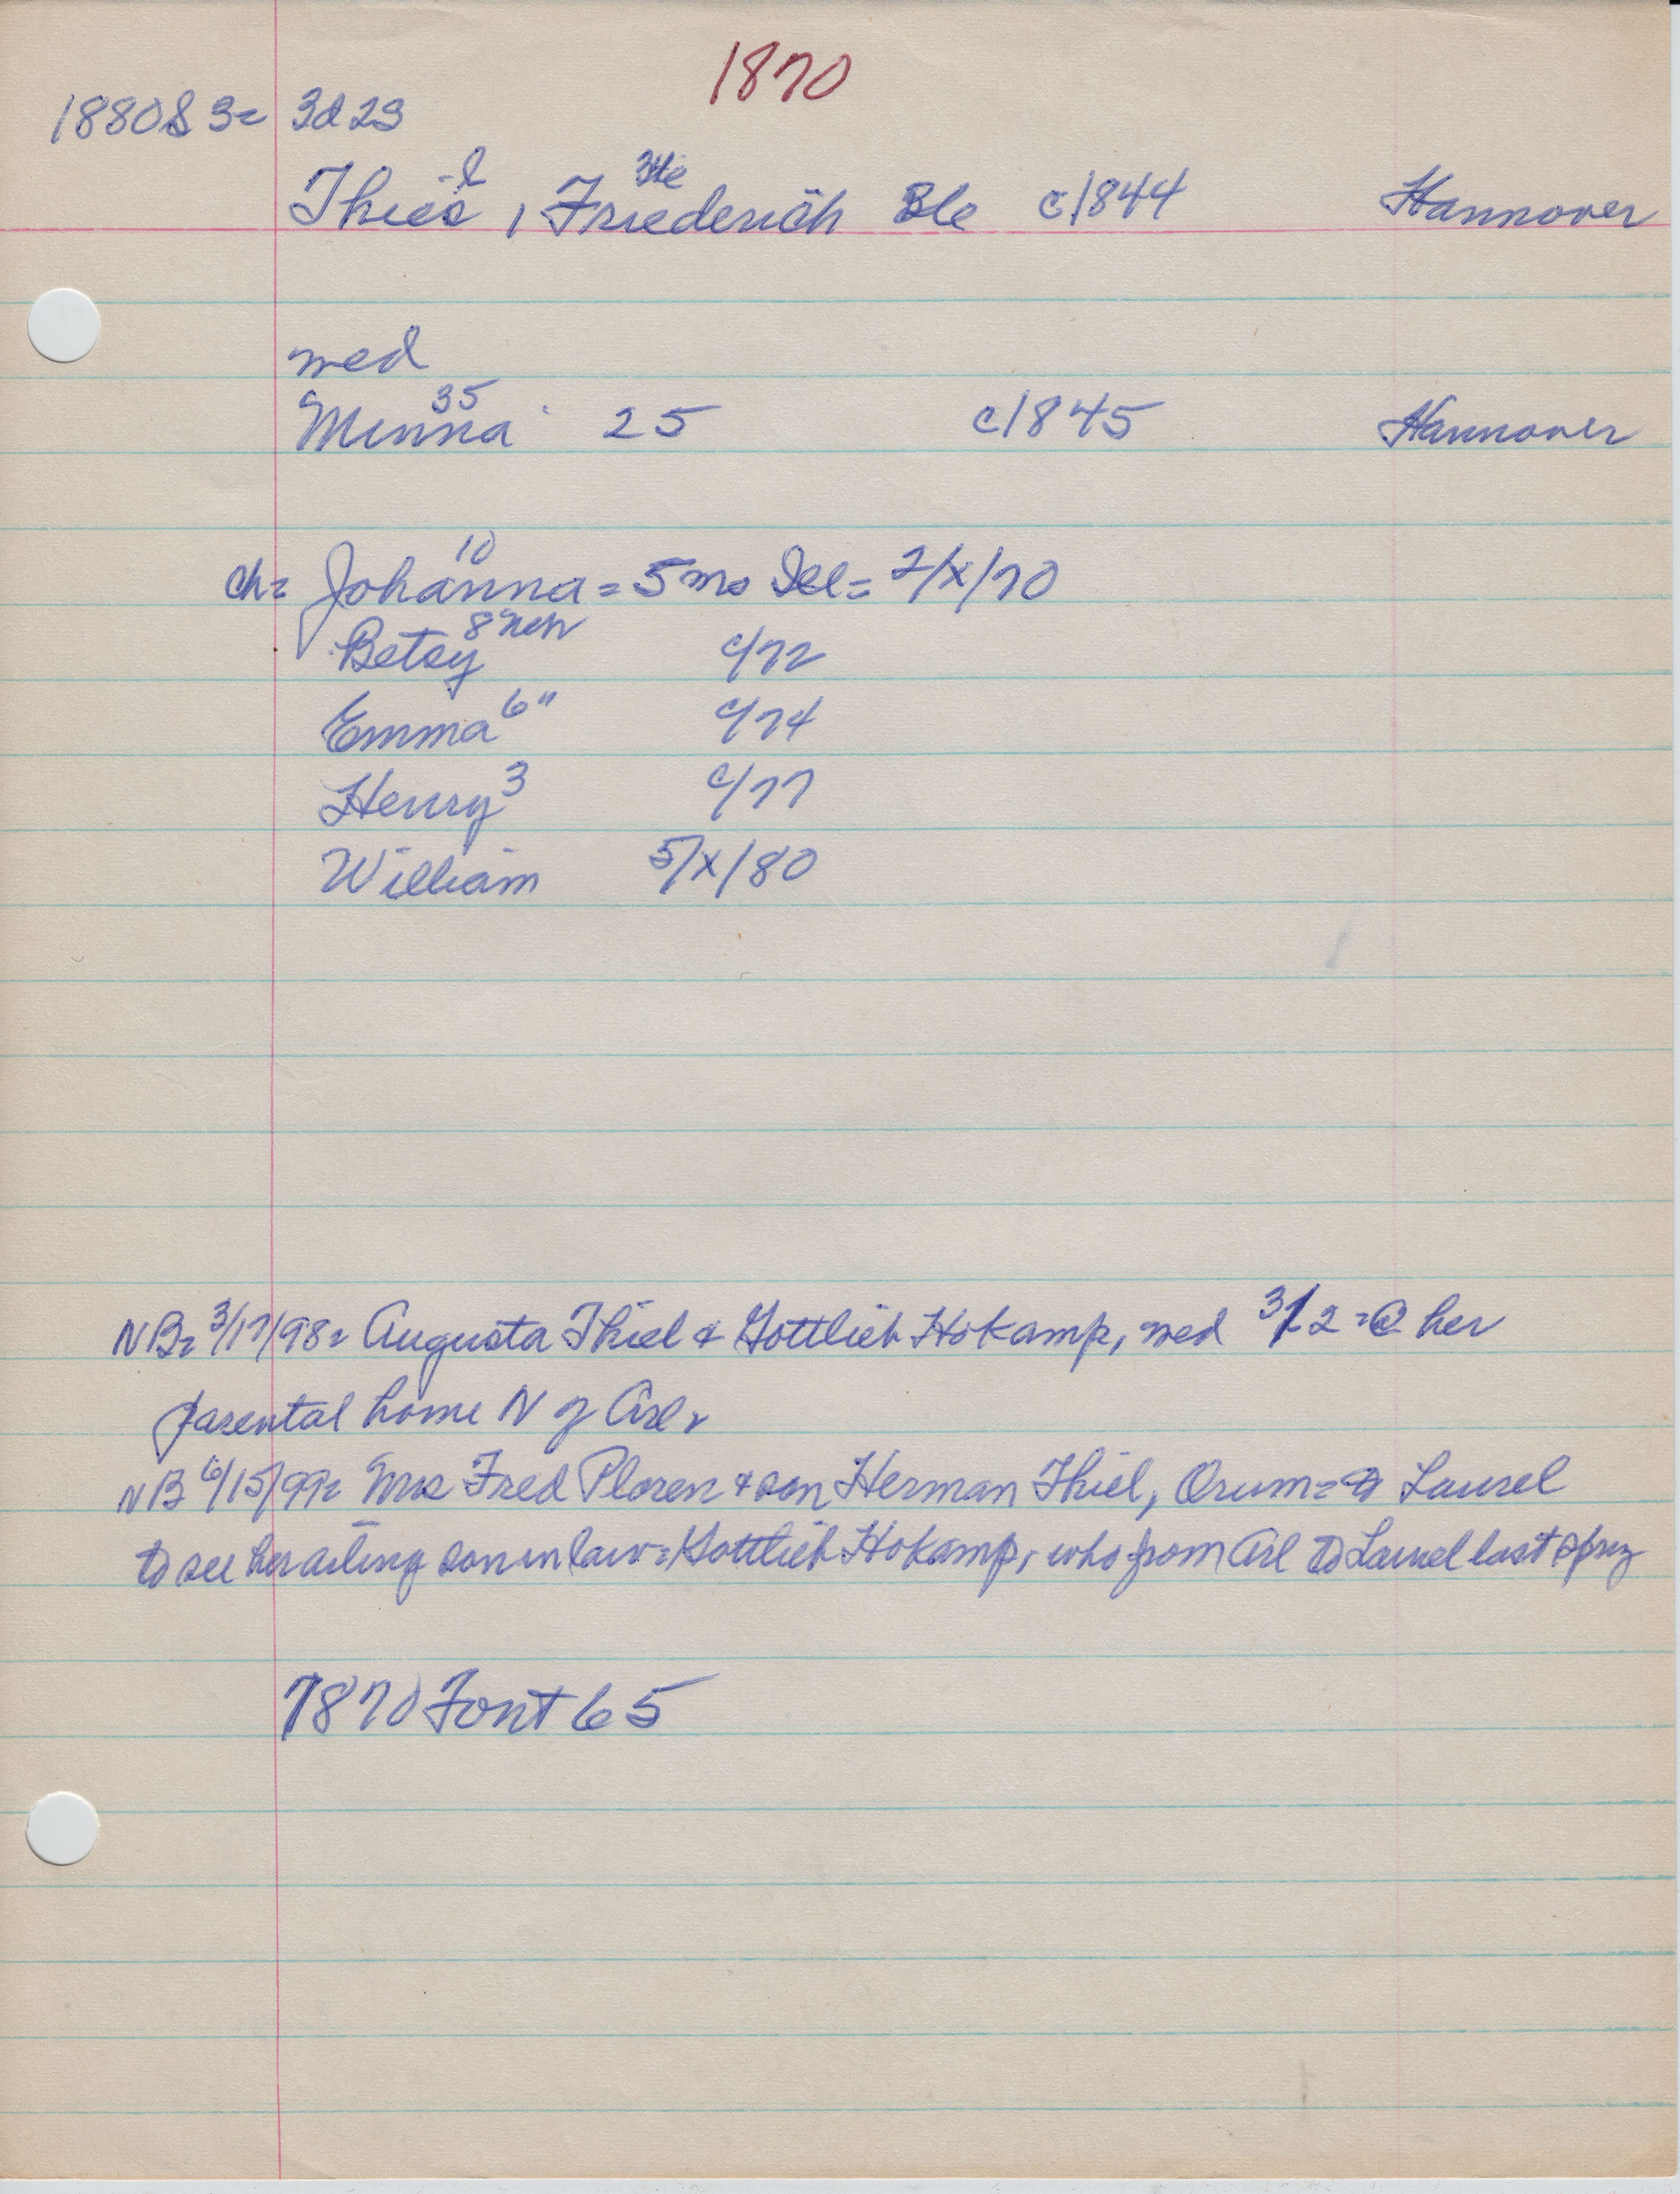 1870
1880S 3= 3d 23
Thies -l, Friederich c1844 Hannover
wed
Minna 35 25 c1845 Hannover
ch= Johanna 10 = 5 mo Ill= 2/X/70
Betsy 8 Neb c/72
Emma 6 " c/74
Henry 3 c/77
William 5/X/80
NB= 3/17/98= Augusta Thiel & Gottlieb Hokamp, wed 3/12=@ her
parental home N of Arl=
NB 6/15/99= Mrs Fred Ploren & son Herman Thiel, Orum= Laurel
to see her ailing son in law= Gottlieb Hokamp, who from Arl to Laurel last sprg
1870 Font 65